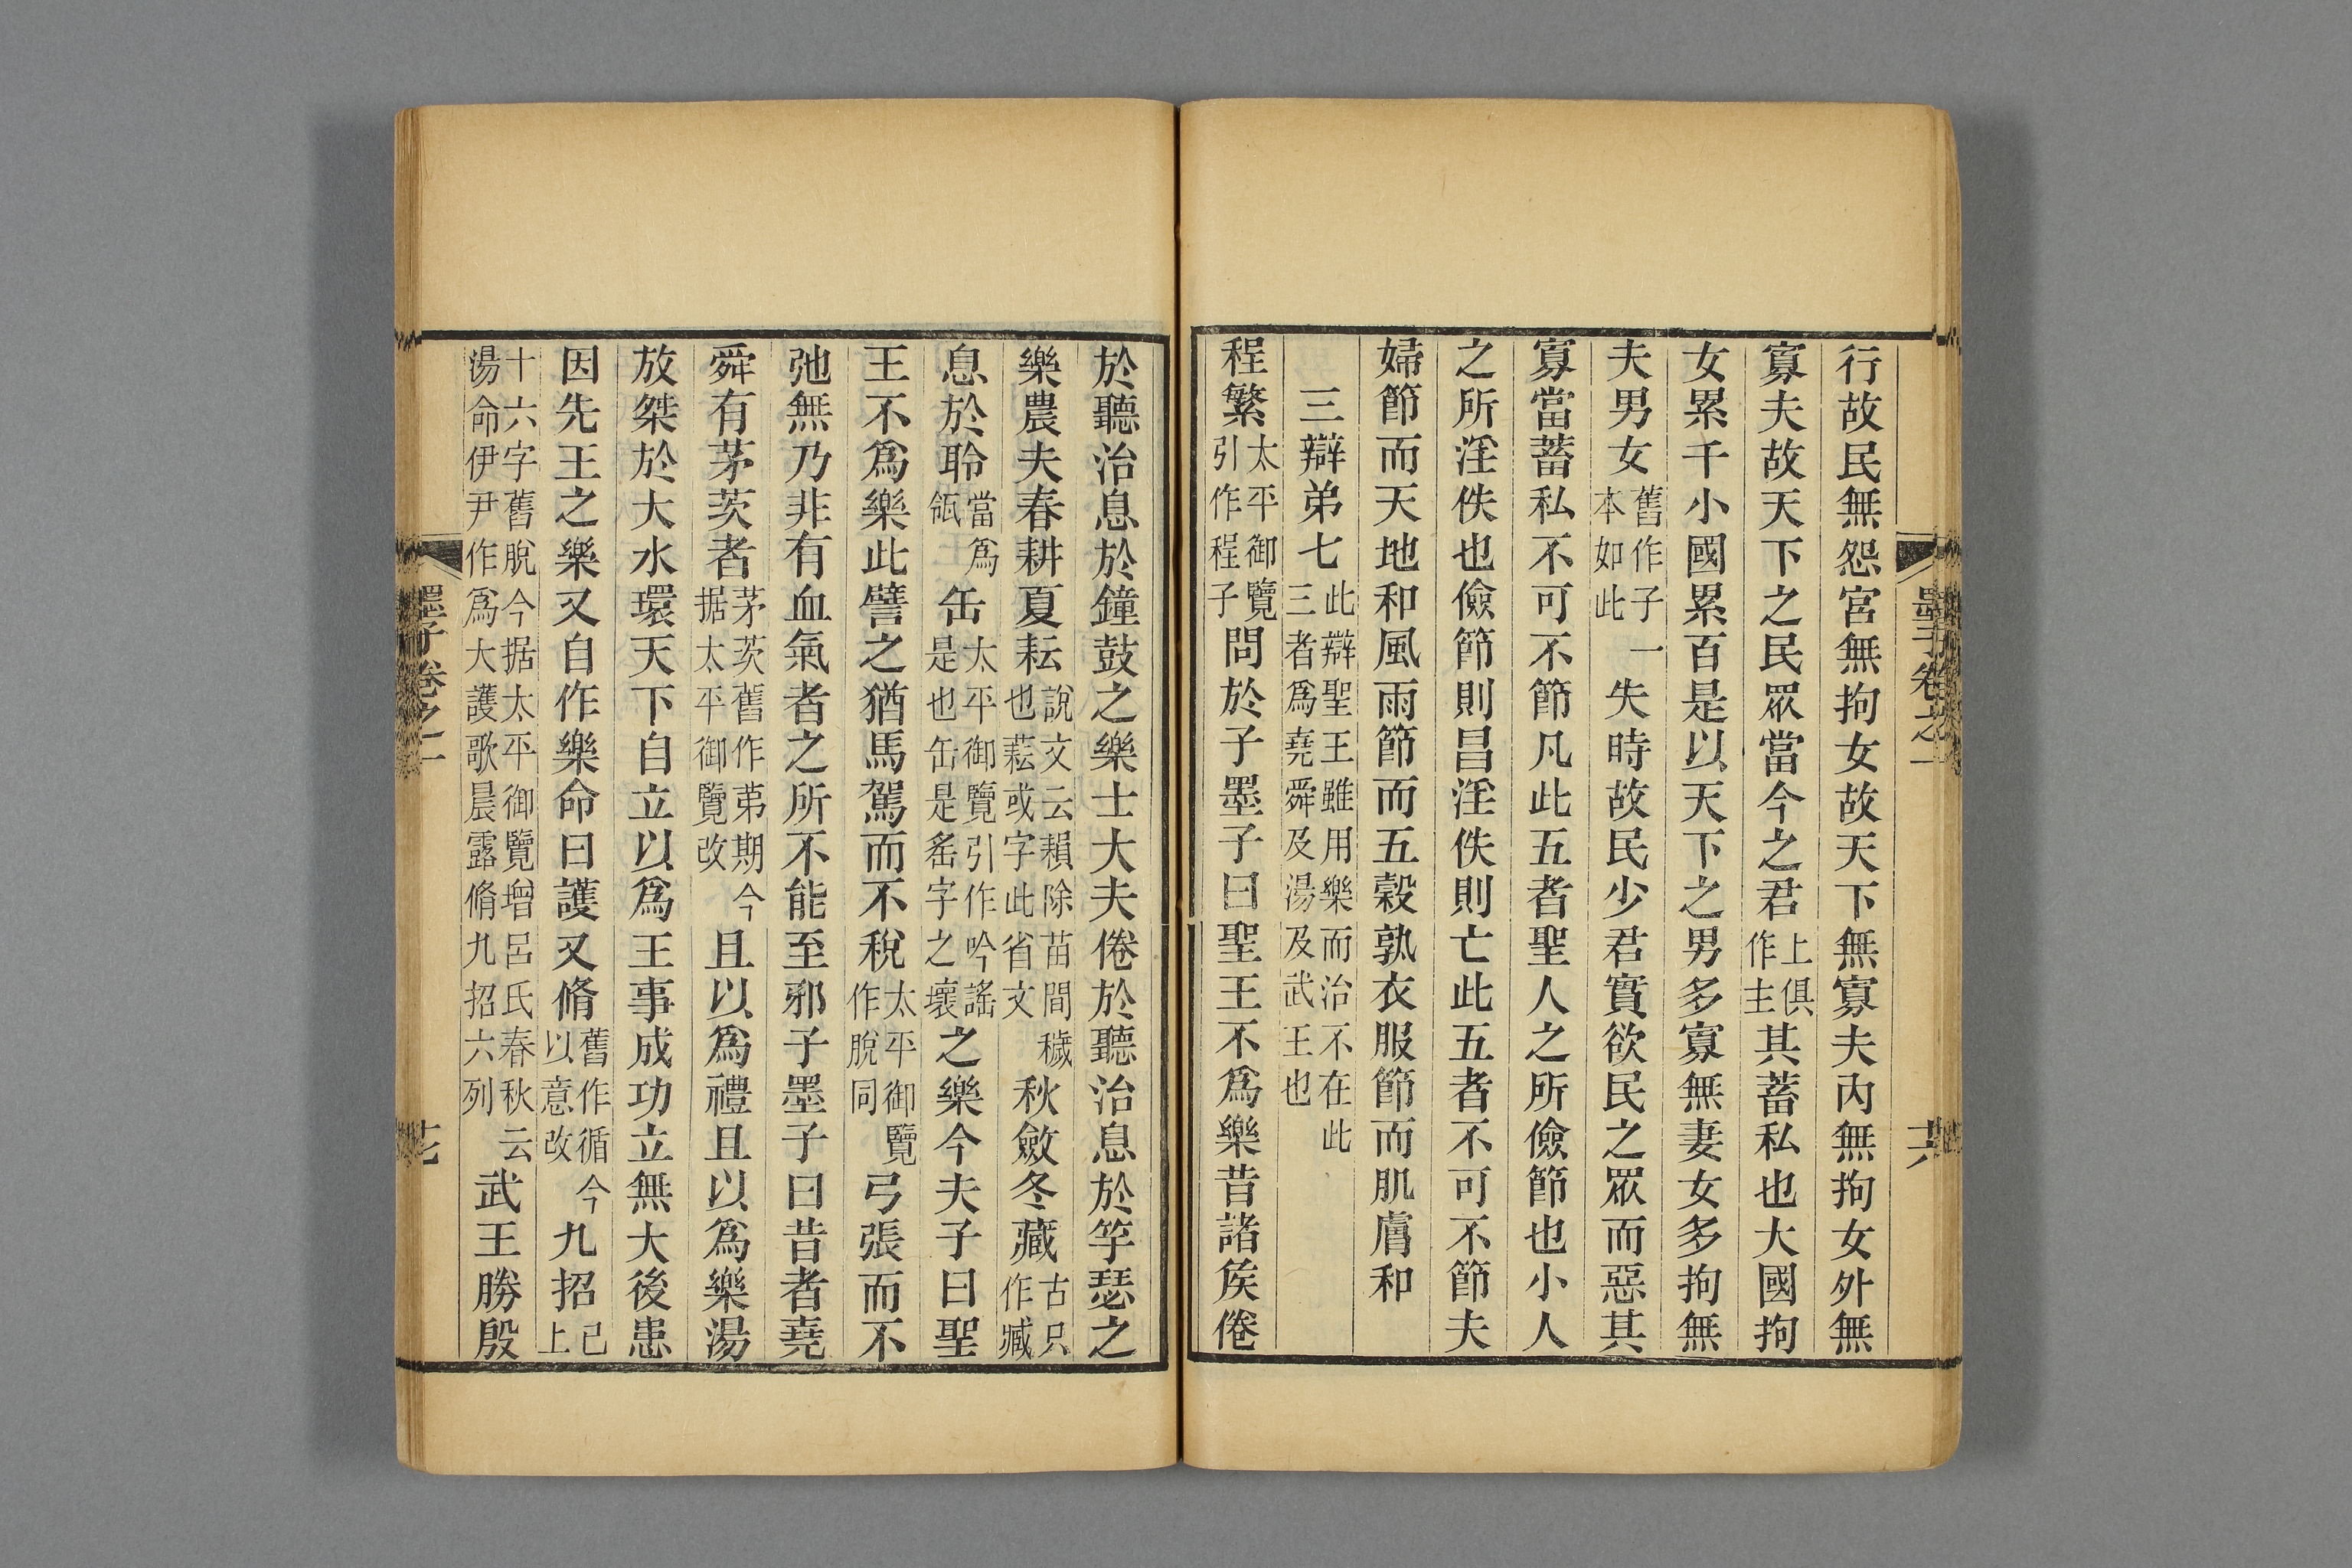 行故民無怨宮無拘女故天下無寡夫內無拘女外無
寡夫故天下之民眾當今之君上俱作主其蓄私也大國拘
女累千小國累百是以天下之男多寡無妻女多拘無
夫男女舊作子一本如此失時故民少君實欲民之眾而惡其
寡當蓄私不可不節凡此五者聖人之所儉節也小人
之所淫佚也儉節則昌淫佚則亡此五者不可不節夫
婦節而天地和風雨節而五穀孰衣服節而肌膚和
三辯弟七此辯聖王雖用樂而治不在此三者爲堯舜及湯及武王也
程繁太平御覽引作程子問於子墨子曰聖王不爲樂昔諸矦倦
於聽治息於鐘鼓之樂士大夫倦於聽治息於竽瑟之
樂農夫春耕夏耘說文云䅏除苗間穢也蕓或字此省文秋斂冬藏古只作臧
息於聆當爲瓴缶太平御覽引作吟謠是也缶是䍃字之壞之樂今夫子曰聖
王不爲樂此譬之猶馬駕而不稅太平御覽作脫同弓張而不
弛無乃非有血氣者之所不能至邪子墨子曰昔者堯
舜有茅茨者茅茨舊作苐期今据太平御覽改且以爲禮且以爲樂湯
放桀於大水環天下自立以爲王事成功立無大後患
因先王之樂又自作樂命曰護又脩舊作循今以意改九招已上
十六字舊脫今据太平御覽增呂氏春秋云湯命伊尹作爲大護歌晨露脩九招六列武王勝殷
墨子卷之一
墨子卷之一